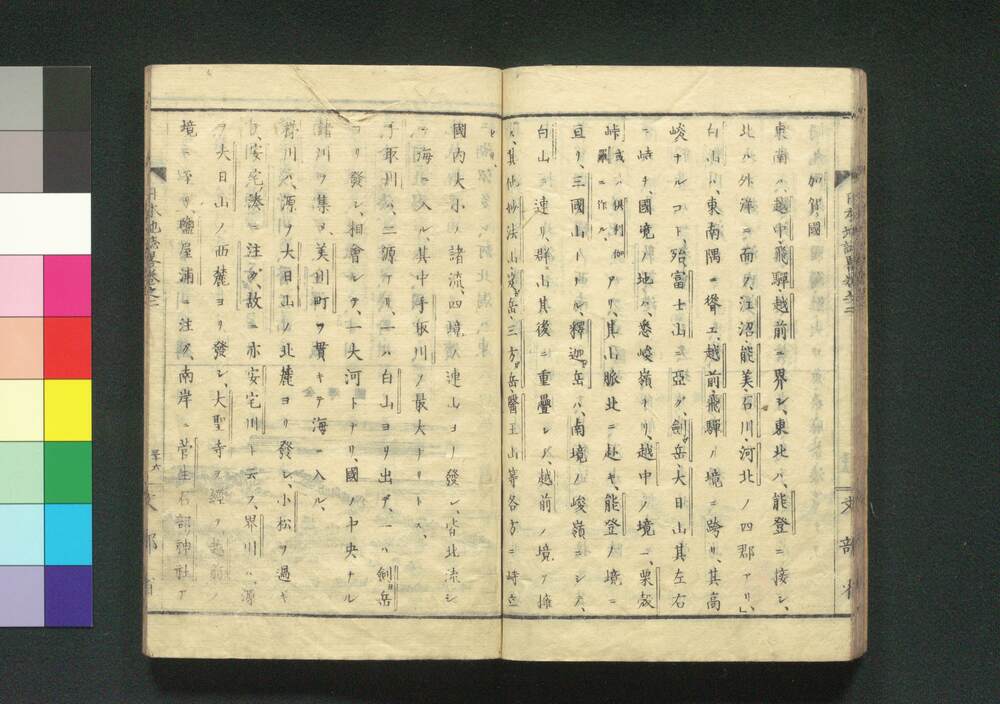 加賀國
東南ハ、越中、飛驒、越前ニ界シ、東北ハ、能登ニ接シ、
北ハ外洋ニ面ス、江沼、能美、石川、河北ノ四郡アリ、
白山ハ、東南隅ニ聳エ、越前飛驒ノ境ニ跨リ、其高
峻ナルコト、殆富士山ニ亞グ、劍岳、大日山其左右
ニ峙チ、國境ノ地ハ、悉峻嶺ナリ、越中ノ境ニ、栗殻
峠或ハ俱利伽羅ニ作ル、アリ、其山脈北ニ赴キ、能登ノ境ニ
亘リ、三國山トナル、釋迦岳ハ、南境ノ峻嶺ニシテ、
白山ニ連リ、群山其後ニ重疊シ、越前ノ境ヲ擁
ス、其他妙法山、笈岳、三方岳、醫王山等各方ニ峙立
セリ、
國内大小ノ諸流、四境ノ連山ヨリ發シ、皆北流シ
テ海ニ入ル、其中手取川ヲ最大ナリトス、
手取川ハ、二源アリ、一ハ白山ヨリ出デ、一ハ劍岳
ヨリ發シ、相會シテ、一大河トナリ、國ノ中央ナル
諸川ヲ集メ、美川町ヲ貫キテ海ニ入ル、
梯川ハ、源ヲ大日山ノ北麓ヨリ發シ、小松ヲ過ギ
テ、安宅湊ニ注グ、故ニ亦安宅川ト云フ、界川ハ、源
ヲ大日山ノ西麓ヨリ發シ、大聖寺ヲ經テ越前
境ニ至リ鹽屋浦ニ注グ、南岸ニ菅生石部神社ア
日本地誌畧卷之二
五十六
文部省